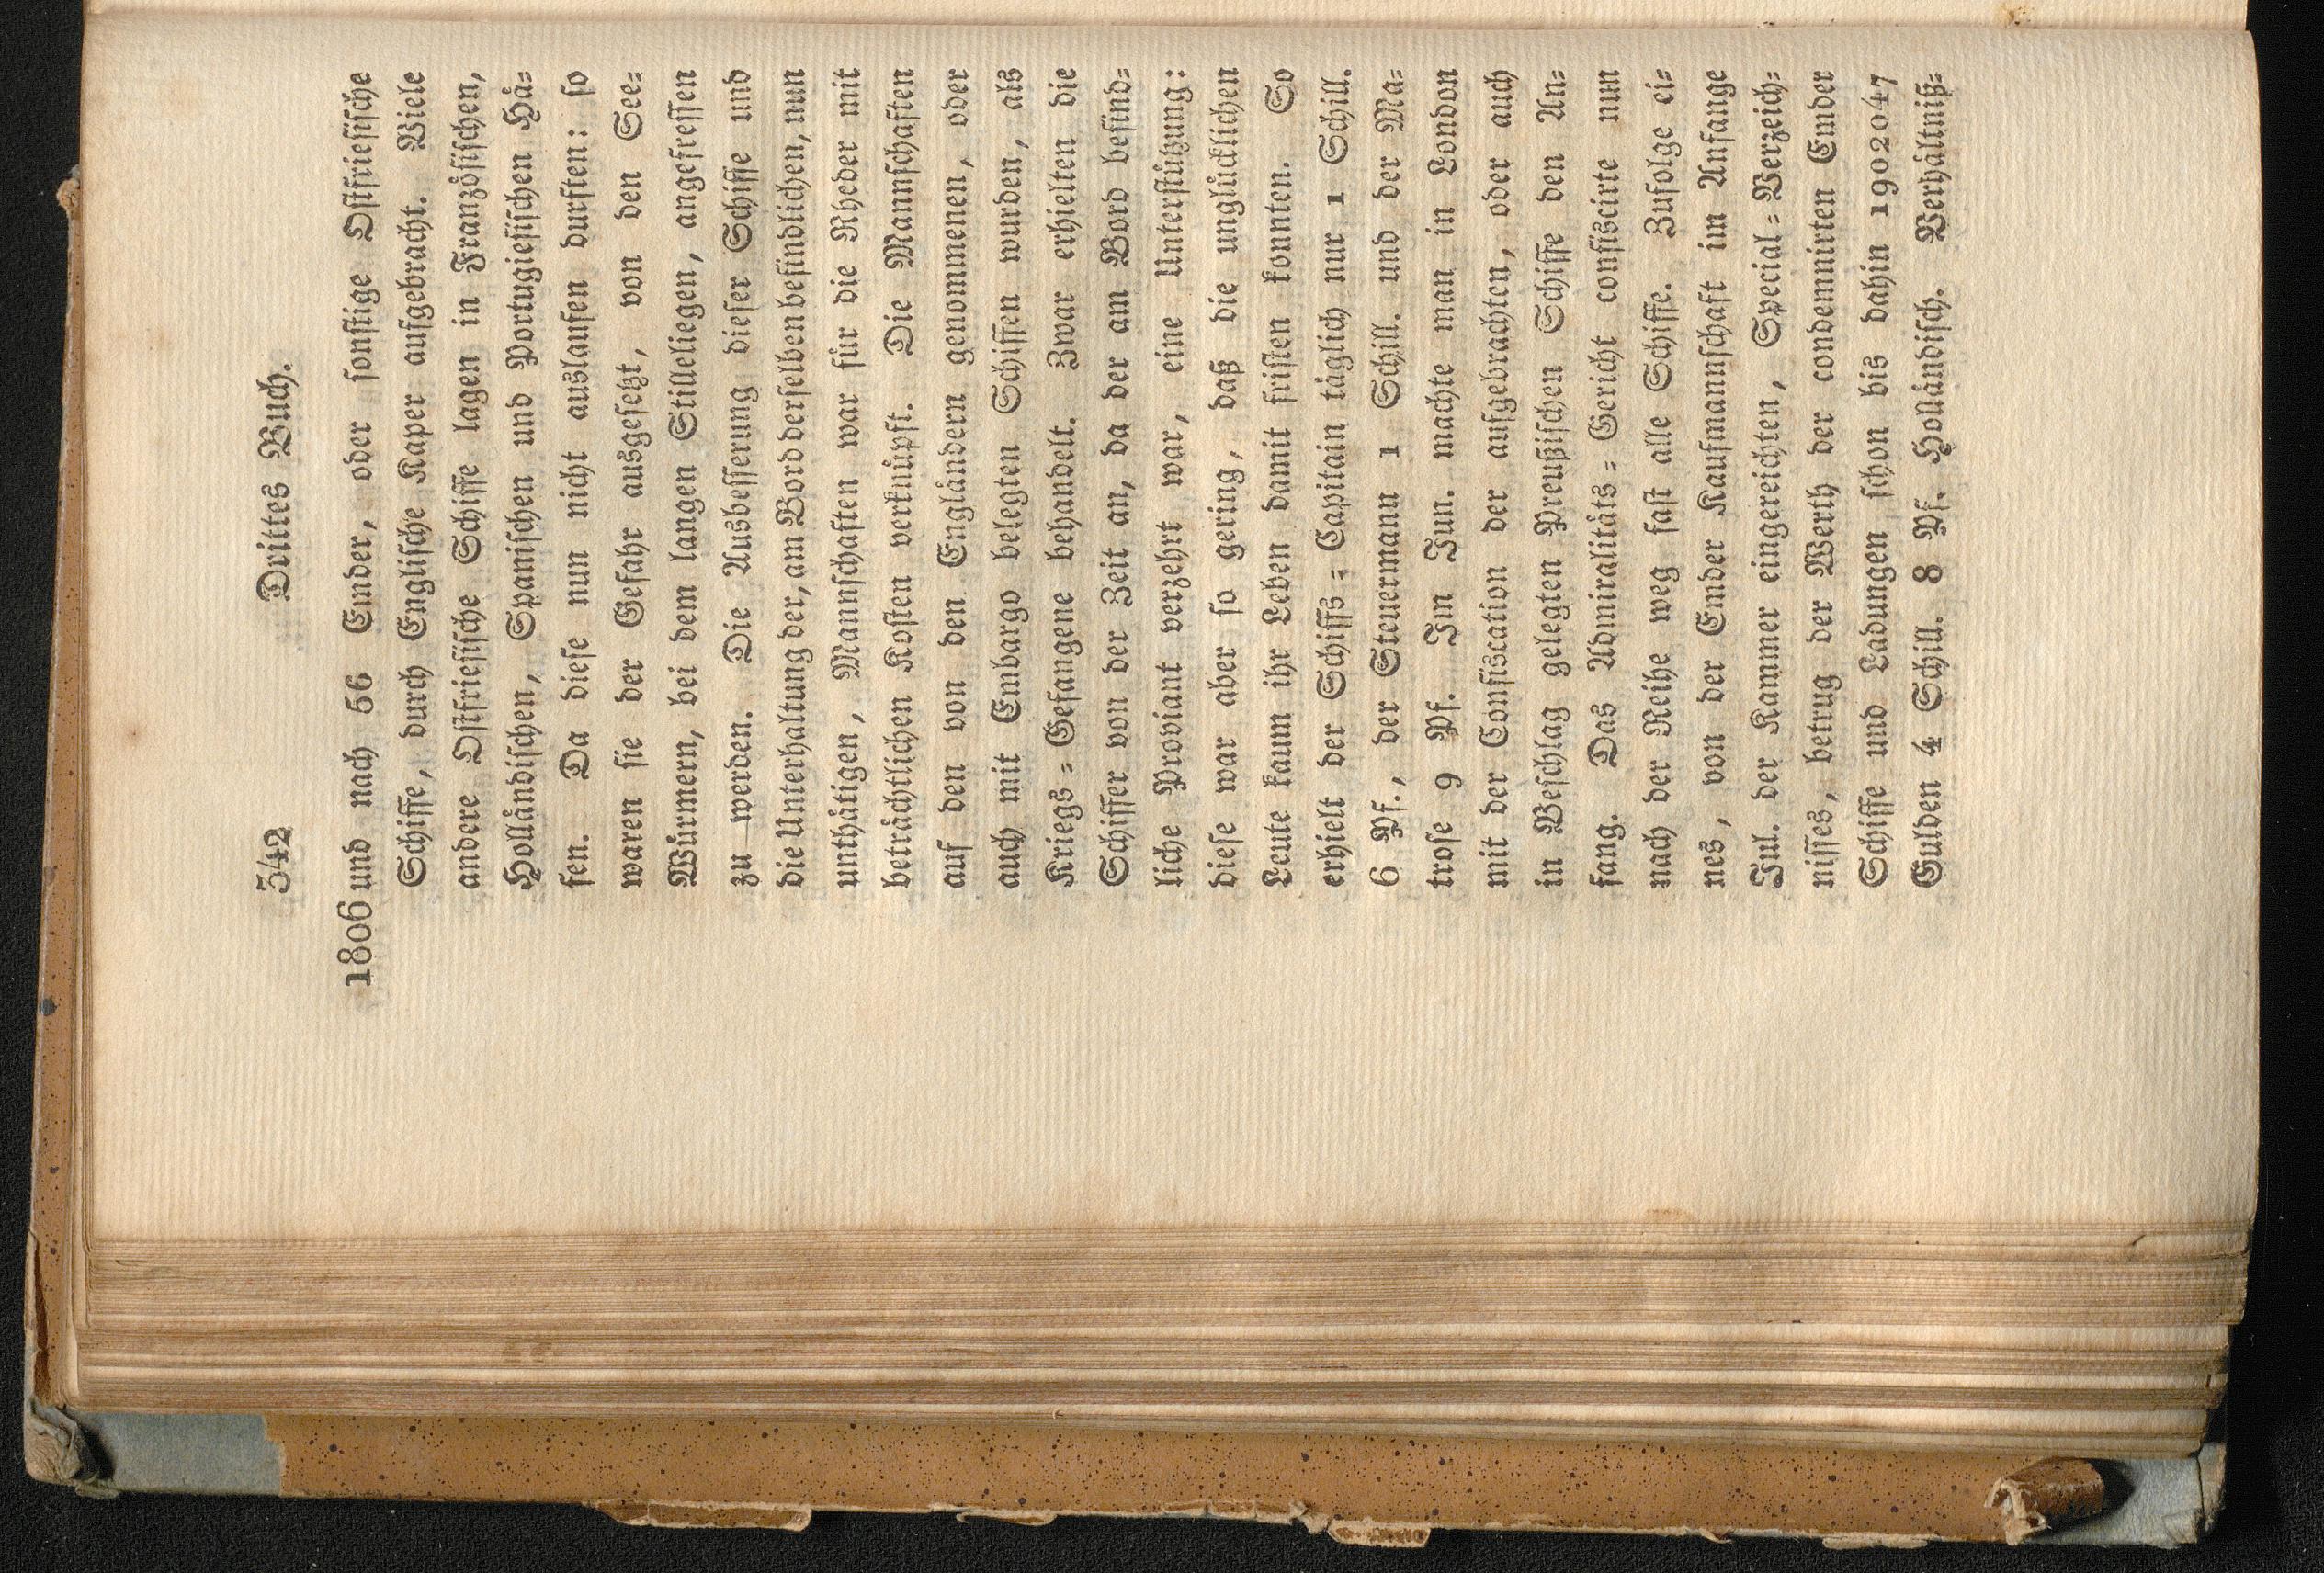 342 Drittes Buch.
1806 und nach 56 Emder, oder sonstige Ostfriesische
Schiffe, durch Englische Kaper aufgebracht. Viele
andere Ostfriesische Schiffe lagen in Französischen,
Holländischen, Spanischen und Portugiesischen Hä-
fen. Da diese nun nicht auslaufen durften: so
waren sie der Gefahr ausgesetzt, von den See-
Würmern, bei dem langen Stilleliegen, angefressen
zu werden. Die Ausbesserung dieser Schiffe und
die Unterhaltung der, am Bord derselben befindlichen, nun
unthätigen, Mannschaften war für die Rheder mit
beträchtlichen Kosten verknüpft. Die Mannschaften
auf den von den Engländern genommenen, oder
auch mit Embargo belegten Schiffen wurden, als
Kriegs-Gefangene behandelt. Zwar erhielten die
Schiffer von der Zeit an, da der am Bord befind-
liche Proviant verzehrt war, eine Unterstützung:
diese war aber so gering, daß die unglücklichen
Leute kaum ihr Leben damit fristen konnten. So
erhielt der Schiffs-Capitain täglich nur 1 Schill.
6 Pf., der Steuermann 1 Schill. und der Ma-
trose 9 Pf. Im Jun. machte man in London
mit der Confiscation der aufgebrachten, oder auch
in Beschlag gelegten Preußischen Schiffe den An-
fang. Das Admiralitäts-Gericht confiscirte nun
nach der Reihe weg fast alle Schiffe. Zufolge ei-
nes, von der Emder Kaufmannschaft im Anfange
Jul. der Kammer eingereichten, Special-Verzeich-
nisses, betrug der Werth der condemnirten Emder
Schiffe und Ladungen schon bis dahin 1902047
Gulden 4 Schill. 8 Pf. Holländisch. Verhältniß-